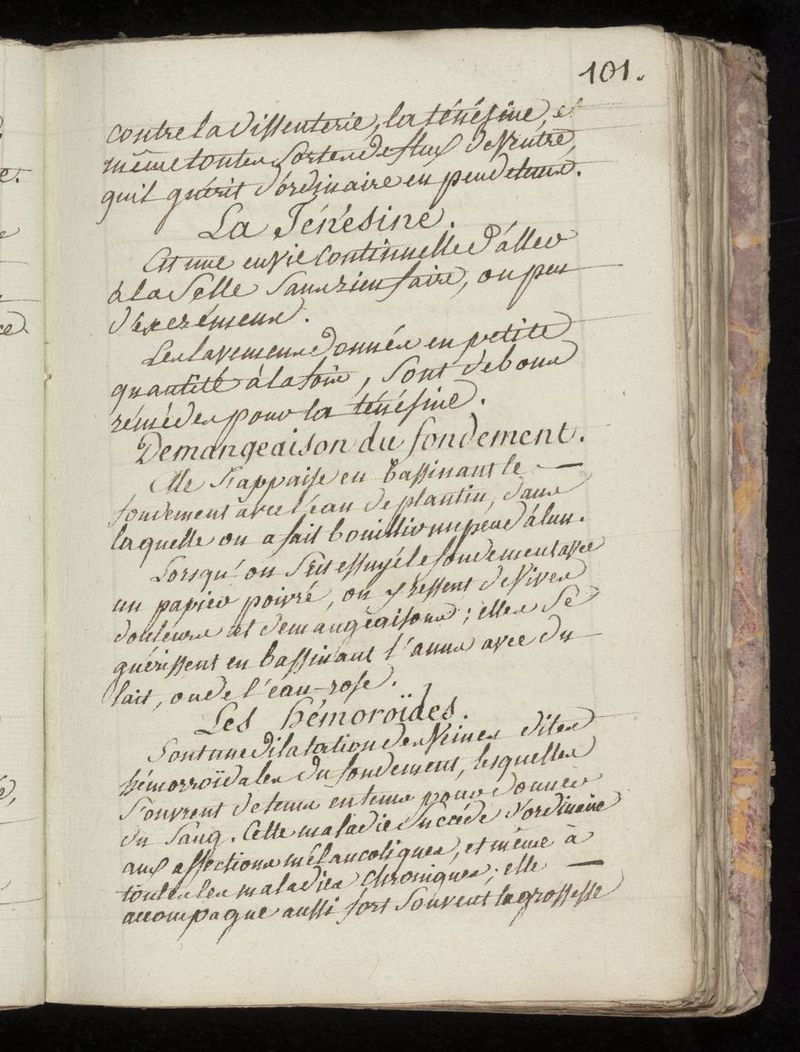 101.
contre la dissenterie, la ténésine, et
même toutes sortes de flux de ventre,
qu'il guérit d'ordinaire en peu de tems.
La Ténésine.
Est une envie continuelle d'aller
à la selle sans rien faire, ou peu
d'excrémens.
Les lavemens donnés en petite
quantité à la fois, sont de bons
rémèdes pour la ténésine.
Demangeaison du fondement.
Elle s'appaise en bassinant le
fondement avec l'eau de plantin, dans
laquelle on a fait bouillir un peu d'alun.
Lorsqu'on s'est essuyé le fondement avec
un papier poivré, on y ressent de vives
douleurs et démangeaisons; elles se
guérissent en bassinant l'anus avec du
lait, ou de l'eau-rose.
Les hémoroïdes.
Sont une dilatation des veines dites
hémorroïdales du fondement, lesquelles
s'ouvrent de tems en tems pour donner
du sang. Cette maladie succéde d'ordinaire
aux affections mélancoliques, et même à
toutes les maladies chroniques; elle
accompagne aussi fort souvent la grossesse